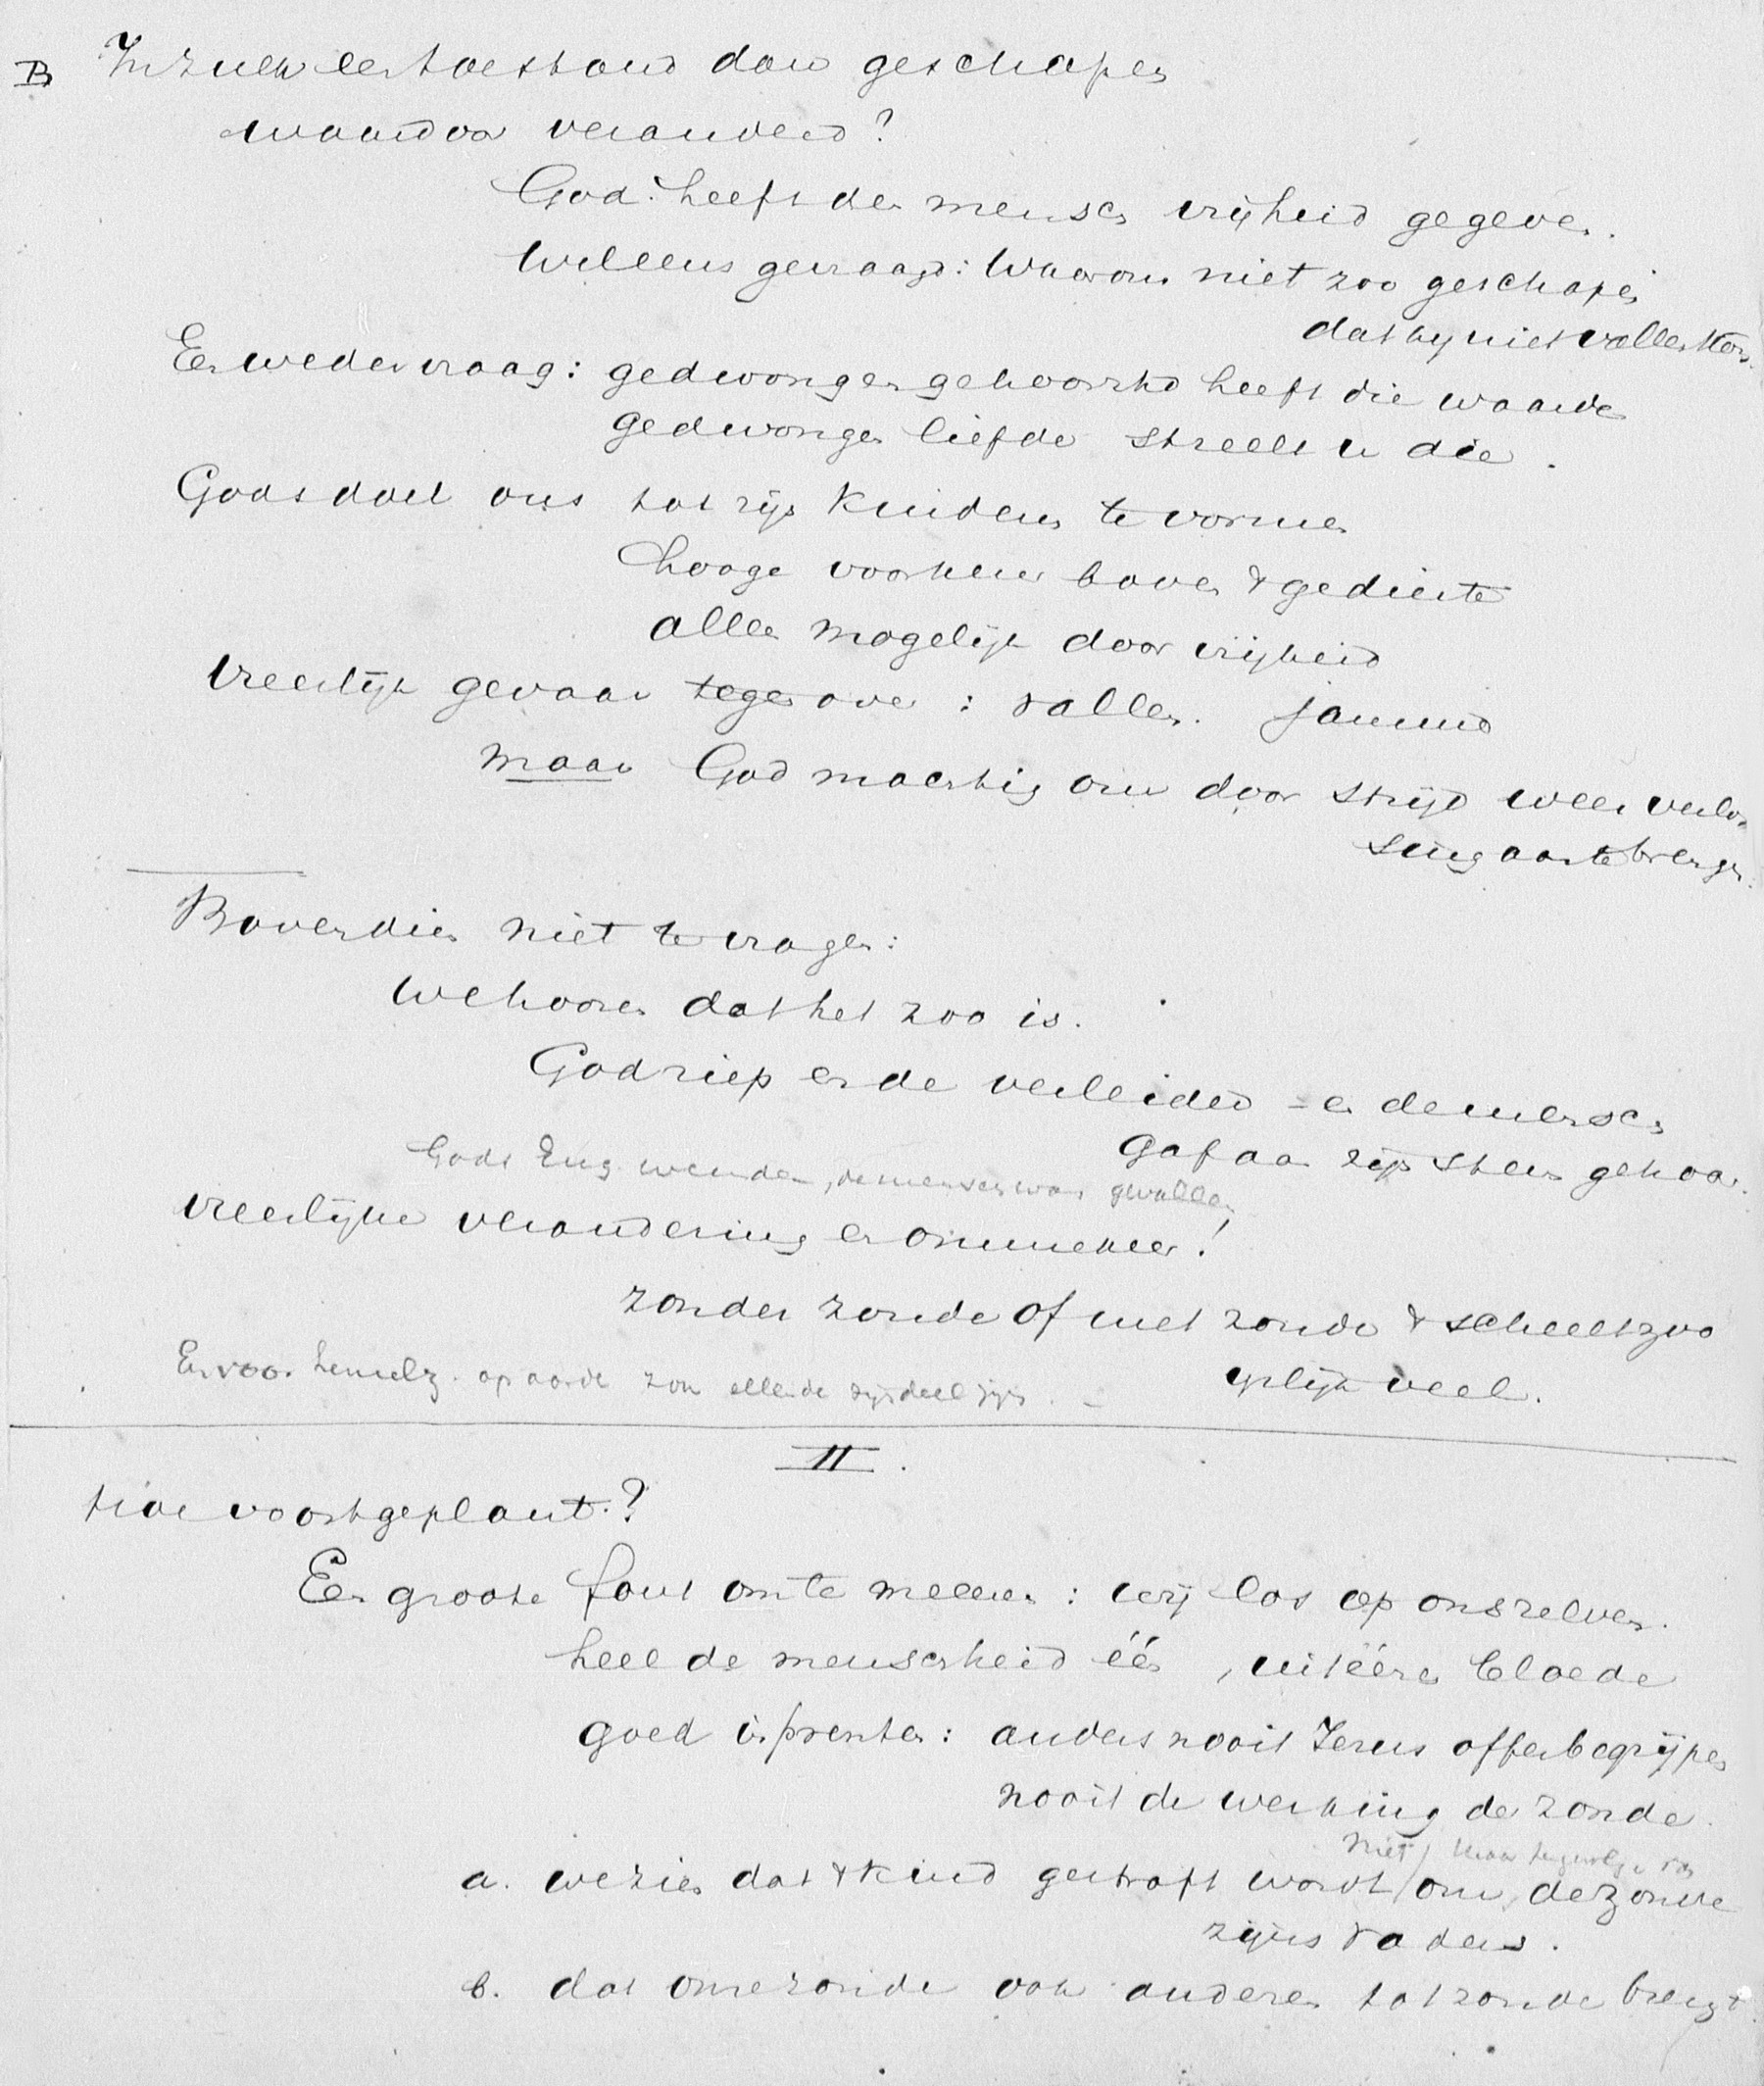 B In zulk een toestand dan geschapen
waardoor veranderd?
God heeft den mensch vrijheid gegeven.
Wel eens gevraagd: Waarom niet zoo geschapen
dat hij niet vallen kon.
Een wedervraag: gedwongen gehoorzhd heeft die waarde
gedwongen liefde streelt u die.
Gods doel ons tot zijn kinderen te vormen
hooge voorkeur boven 't gedierte
alleen mogelijk door vrijheid
Vreeslijk gevaar tegenover: vallen.
maar God machtig om door strijd weer verlos
sing aan te brengen.
Bovendien niet te vragen:
We hooren dat het zoo is.
God riep en de verleider - en de mensch
gaf aan zijn stem gehoor.
Gods Eng. weenden, de mensch was gevallen
Vreeslijke verandering en ommekeer!
zonder zonde of met zonde 't scheelt zoo
gelijk veel.
En voor hemelz. op aarde zou ellende zijn deel zijn.
II.
Hoe voortgeplant.?
Een groote fout om te meenen: wij los op onszelven.
heel de menschheid één, uit éénen bloede
goed inprenten: anders nooit Jezus offer begrijpen
nooit de werking der zonde.
niet / maar tengevolge van
a. we zien dat 't kind gestraft wordt / om de zonde
zijns vaders.
b. dat onze zonde ook anderen tot zonde brengt.